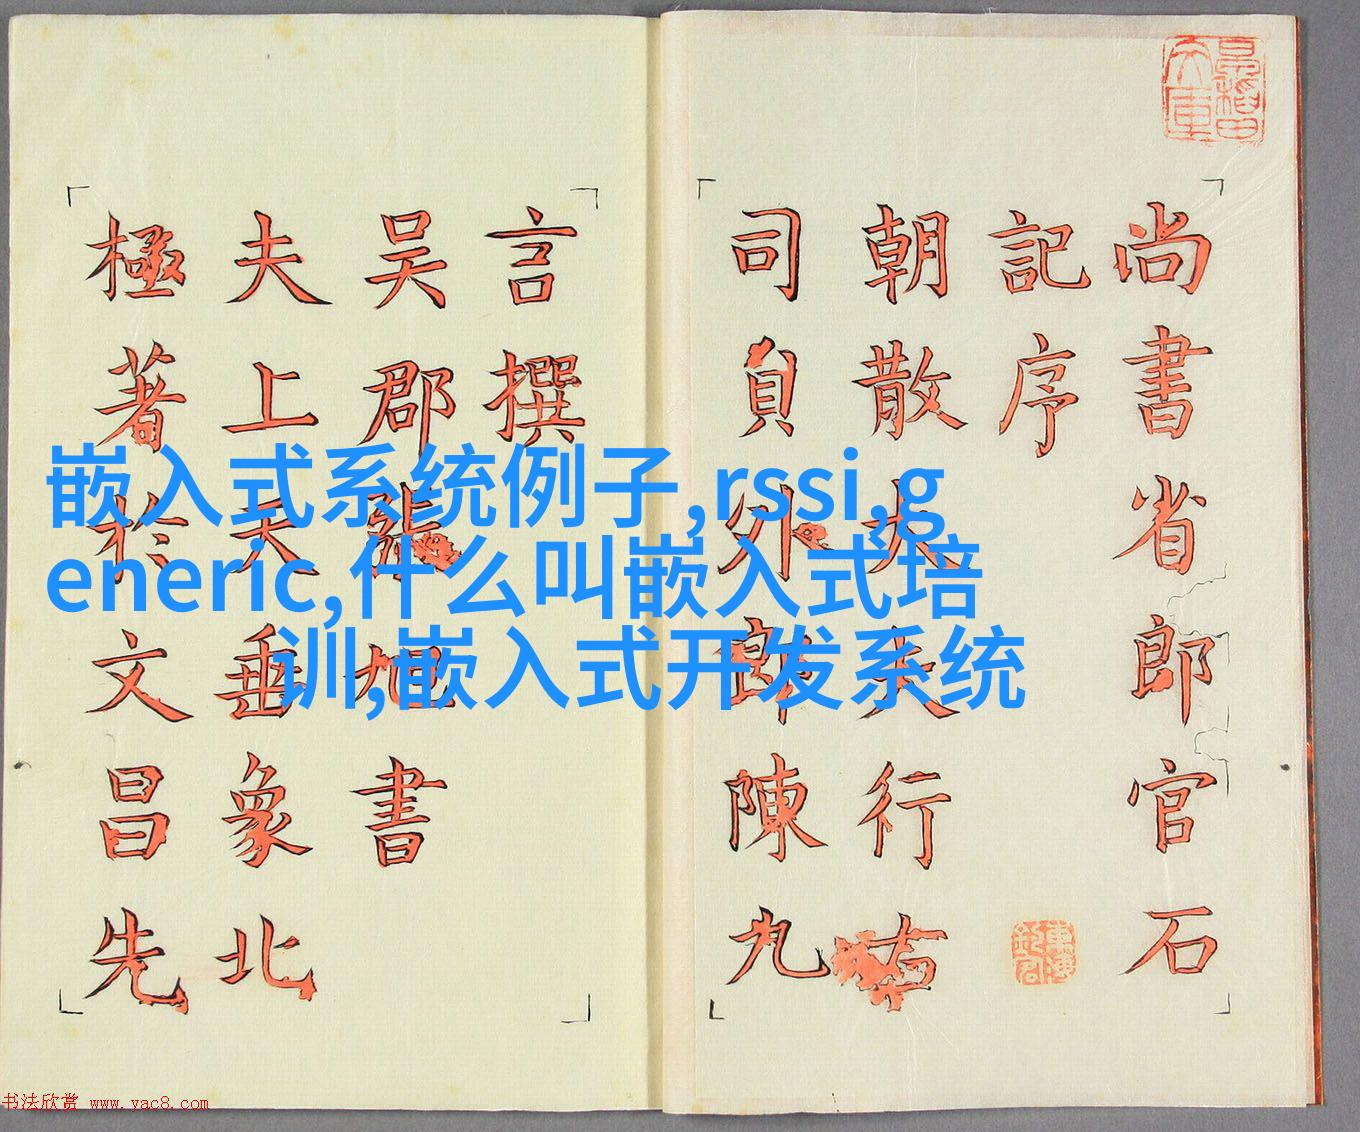 尚書省郎官石
記序
朝散大夫行右
司貟外郎陳九
言撰
吴郡張旭書
夫上天垂象北
極著於文昌先
嵌入式系统例子,rssi,g
eneric,什么叫嵌入式培
训,嵌入式开发系统
书法欣赏 www.yac8.com